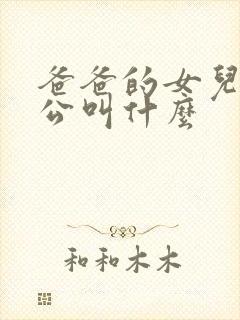 爸爸的女兒
公叫什麼
和和木木